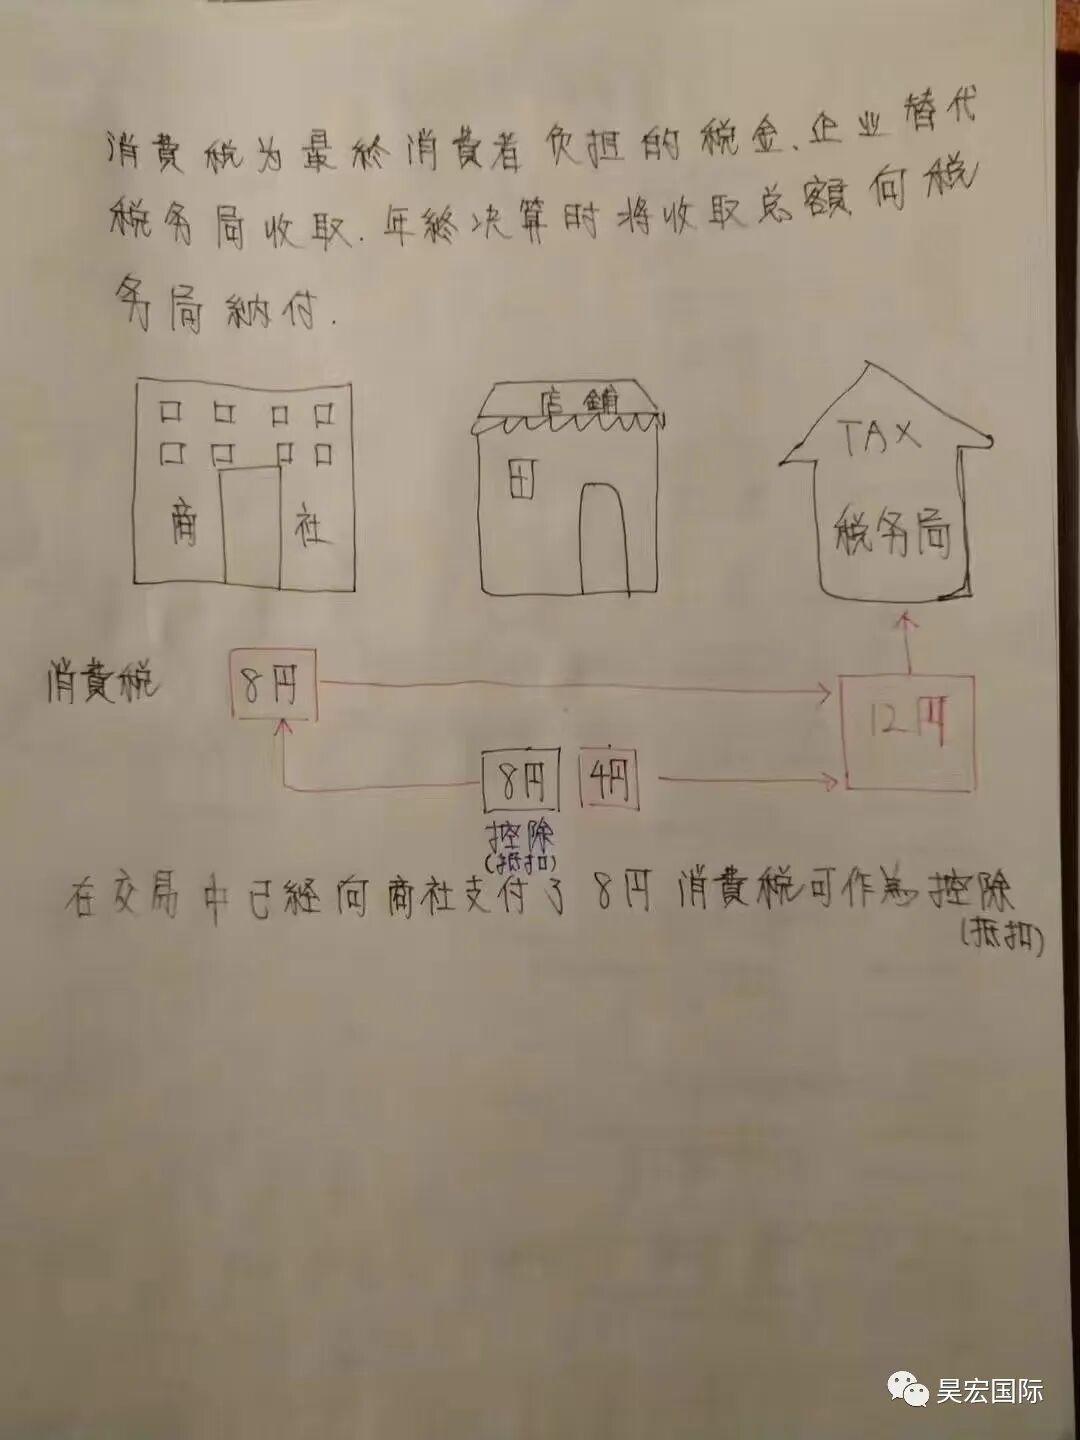 消費税为最終消費者负担的税金、企业替代
税务局收取.年終决算时将收取总額向税
务局納付.
店舗
TAX
商社
税务局
消費税
8円
12円
8円
4円
控除
(抵扣)
在交易中已経向商社支付了8円消費税可作為控除
(抵扣)
昊宏国际